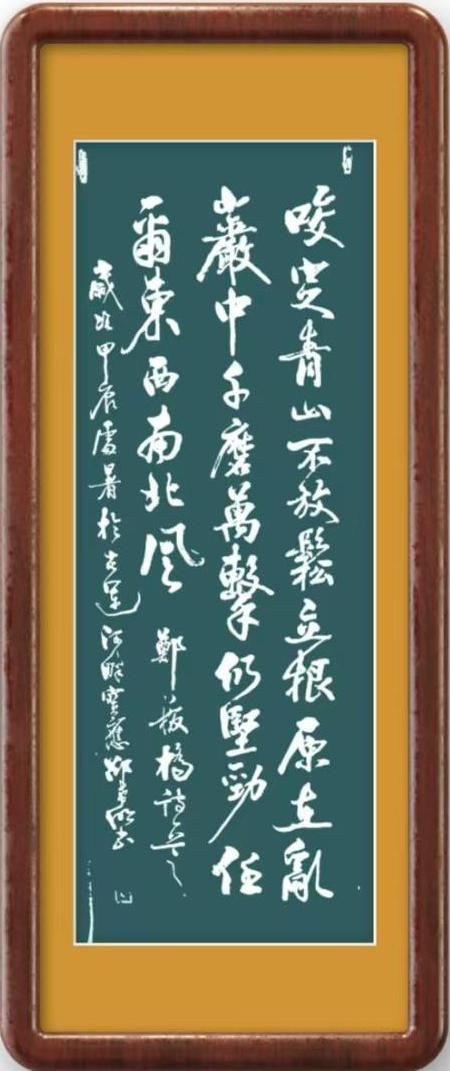 咬定青山不放鬆立根原在亂
巖中千磨萬擊仍堅勁任
爾東西南北風
鄭板橋詩
歲次甲辰處暑於古運河畔寶應